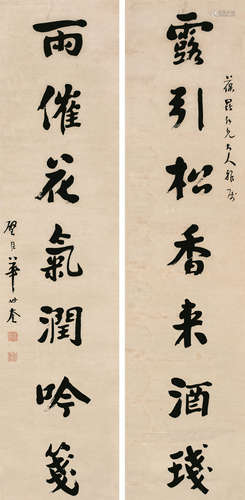 露引松香来酒琖
兄大人雅属
雨催花氣潤吟箋
璧臣華世奎